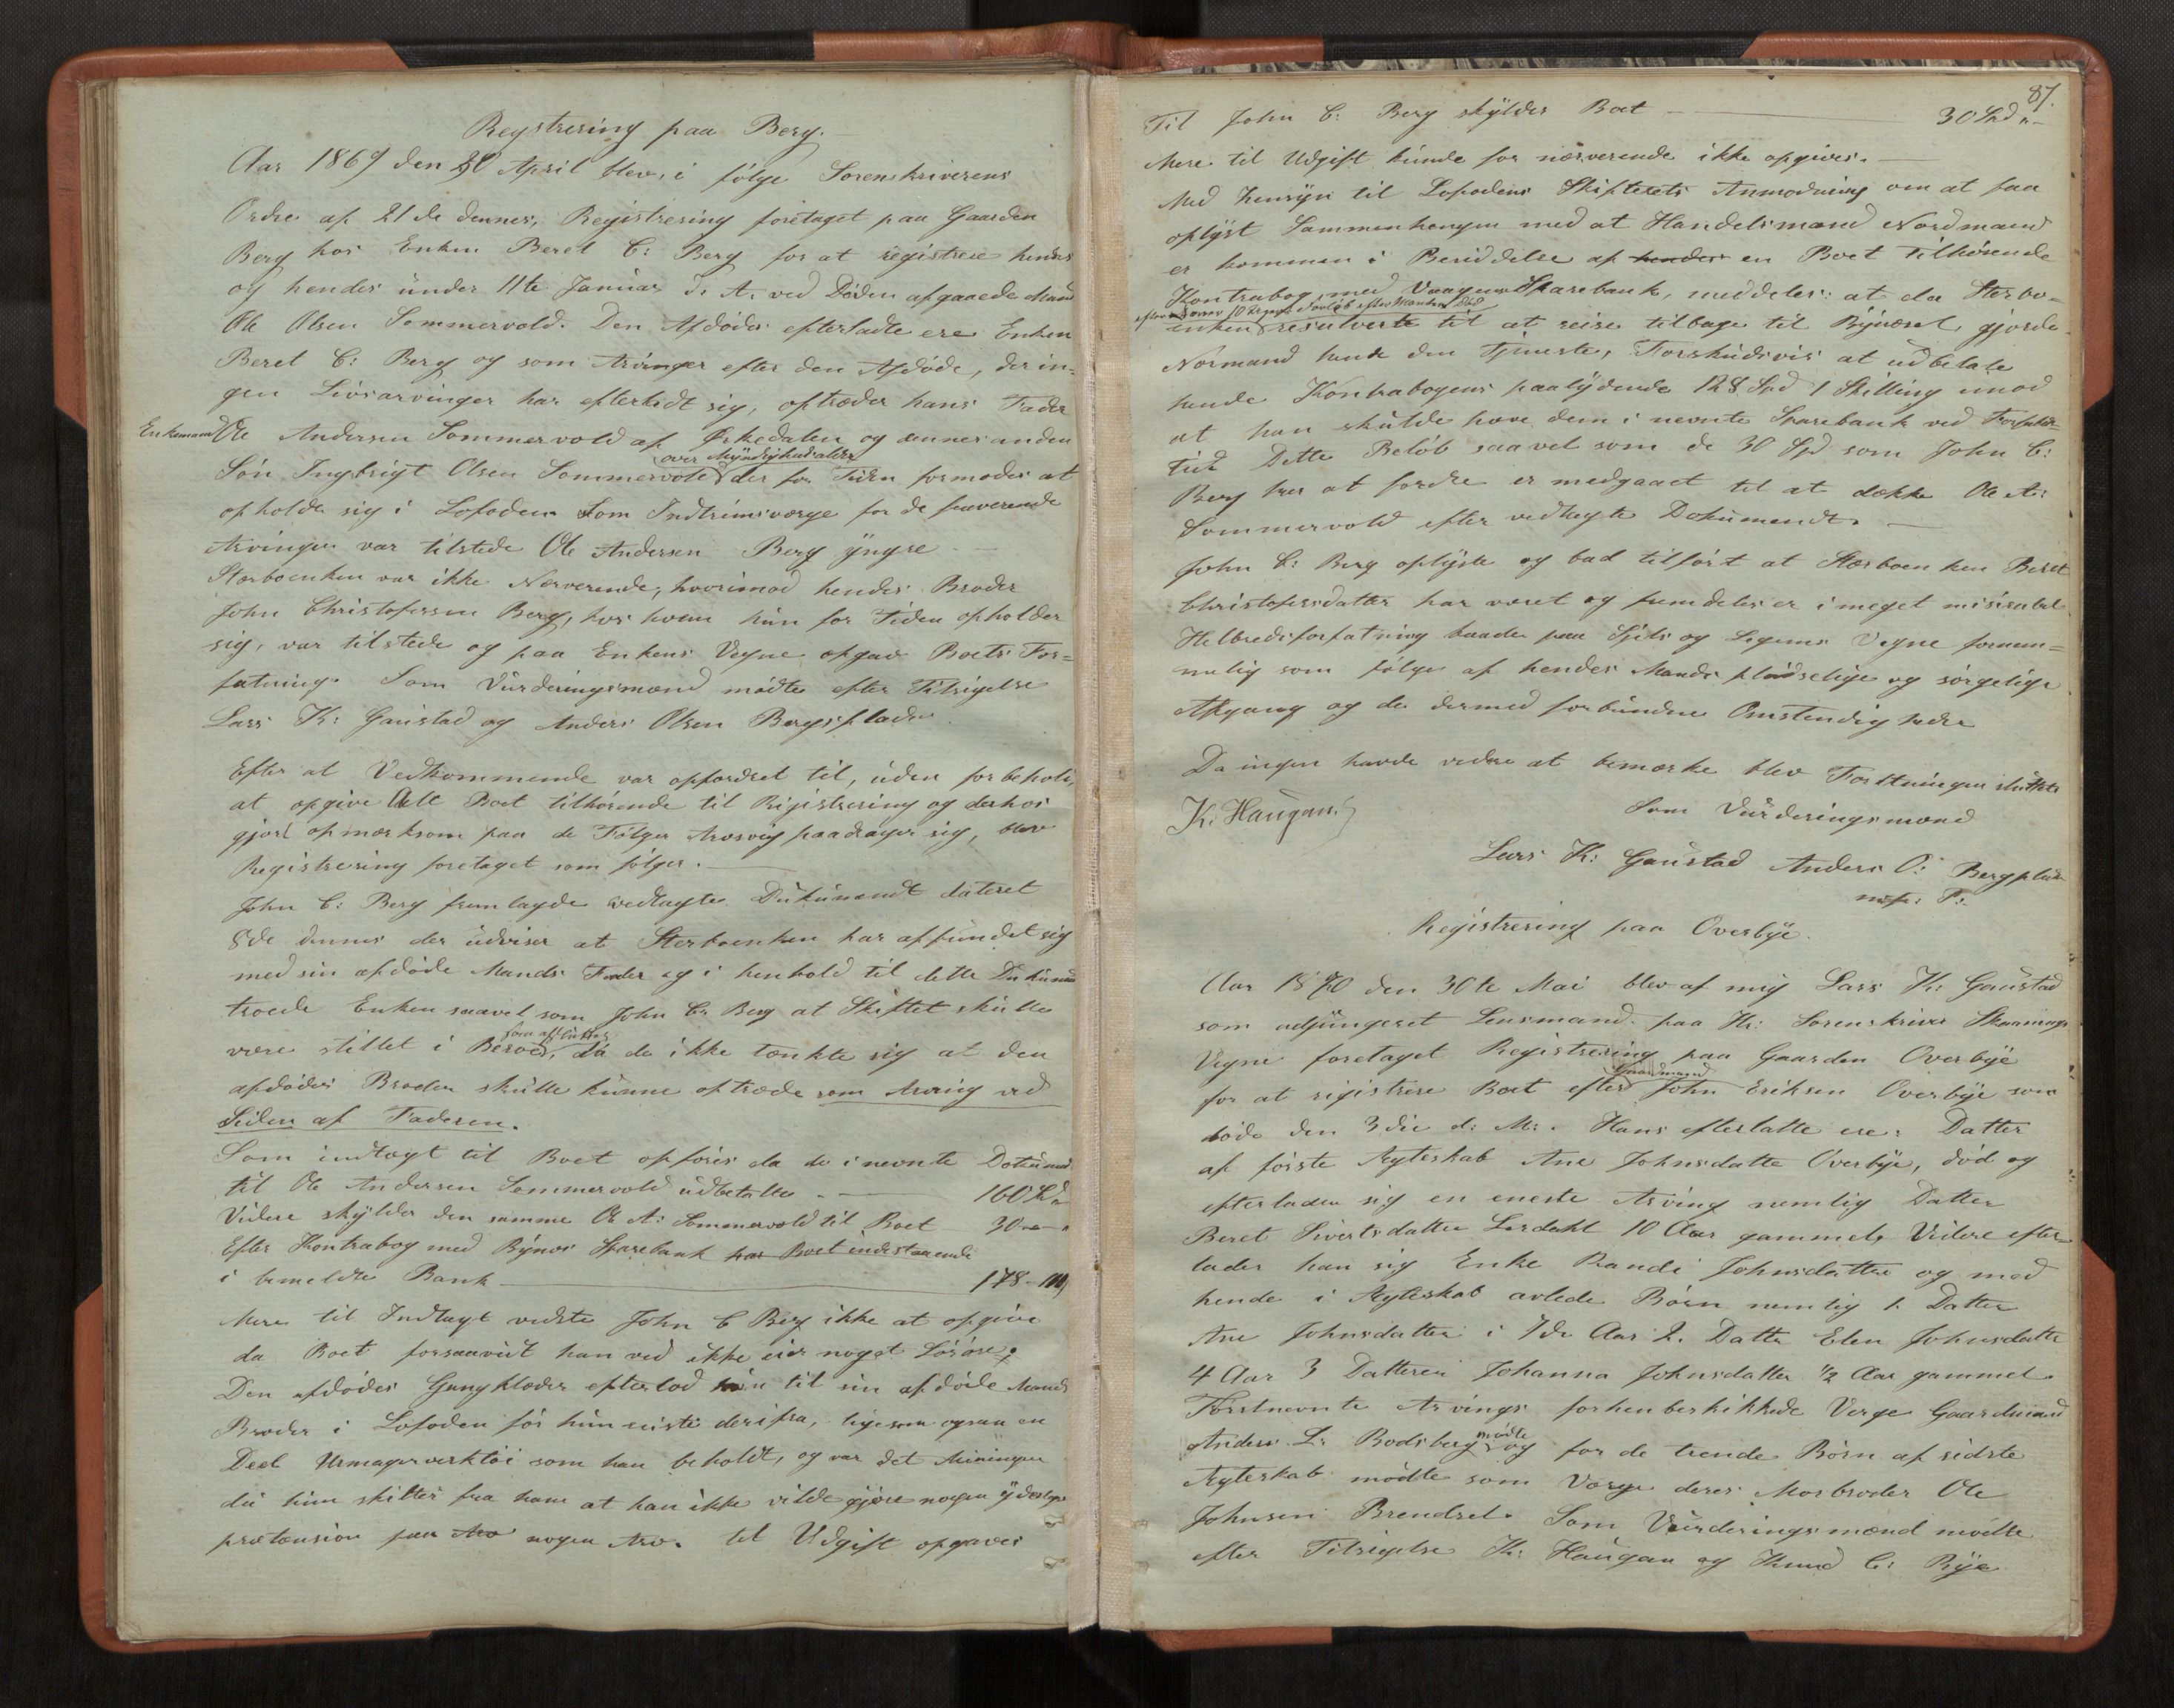 Registrering paa Berg.
Aar 1869 den 30 April blev, i følge Sorenskriverens
Ordre af 21de dennes, Registrering foretaget paa Gaarden
Berg hos Enken Beret C: Berg for at registrere hendes
og hendes under 11te Januar d. A. ved Døden afgaaede Mand
Ole Olsen Sommervold. Den Afdødes efterladte ere Enken
Beret C: Berg og som Arvinger efter den Afdøde, der in-
gen Livsarvinger har efterladt sig, optræder hans Fader
Enkemand Ole Andersen Sommervold af Ørkedalen og dennes anden
Søn Ingbrigt Olsen Sommervold over Myndighedsalder der for Tiden formodes at
opholde sig i Lofoden. Som Indtrimsværge for de fraværende
Arvinger var tilstede Ole Andersen Berg yngre
Stærboenken var ikke Nærverende, hvorimod hendes Broder
John Christofersen Berg, hos hvem hun for Tiden opholder
sig, var tilstede og paa Enkens Vegne opgav Boets For-
fatning. Som Vurderingsmænd mødte efter Tilsigelse
Lars K: Gaustad og Anders Olsen Bergsplads.
Efter at Vedkommende var opfordret til, uden forbehold,
at opgive Alt Boet tilhørende til Registrering og derhos
gjort opmærksom paa de Følger Arvsvig paadrager sig, blev
Registrering foretaget som følger.
John C: Berg fremlagde vedlagte Dukument dateret
8de dennes der udviser at Sterboenken har affundet sig
med sin afdøde Mands Fader og i henhold til dette Dukument
troede Enken saavel som John C: Berg at Skiftet skulle
være stillet i Beroe, som afsluttet, da de ikke tænkte sig at den
afdødes Broder skulle kunne optræde som Arving ved
Siden af Faderen.
Som indtægt til Boet opføres da de i nevnte Dokument
til Ole Andersen Sommervold udbetalte 160
Videre skylder den samme Ole A: Sommervold til Boet 30
Efter Kontrabog med Bynes Sparebank har Boet indestaaende
i bemeldte Bank 178
Mere til Indtægt vidste John C Berg ikke at opgive
da Boet forsaavidt han ved ikke eier noget Løsøre.
Den afdødes Gangklæder efterlod hun til sin afdøde Mands
Broder i Lofoden før hun reiste derifra, ligesom ogsaa en
Deel Urmagerverktøi som han beholdt, og var det Meningen
da hun skiltes fra ham at han ikke vilde gjøre nogen yderligere
prætension paa Arv nogen Arv. til Udgift opgaves
87.
Til John C: Berg skylder Boet 30 Spd
Mere til Udgift kunde for nærverende ikke opgives.
Med Hensyn til Lofodens Skifterets Anmodning om at faa
oplyst Sammenhengen med at Handelsmand Nordmand
er kommen i Besiddelse af hendes en Boet Tilhørende
Kontrabog med Vaagens Sparebank, meddeles: at da Sterbo-
efter over 10 Ugers Forløb efter Mandens Død
enken resulverte til at reise tilbage til Bynæset, gjorde
Normand hende den Tjeneste, Forskudsvis at udbetale
hende Kontrabogens paalydende 128 Spd 1 Skilling imod
at han skulde hæve dem i nevnte Sparebank ved Forfalds-
tid Dette Beløb saavel som de 30 Spd som John C:
Berg har at fordre er medgaaet til at dække Ole A:
Sommervold efter vedlagte Dokumendt.
John C: Berg oplyste og bad tilført at Stærboenken Beret
Christofersdatter har været og fremdeles er i meget miserabel
Helbredsforfatning baade paa Sjels og Legems Vegne fornem-
melig som følge af hendes Mands pludselige og sørgelige
Afgang og de dermed forbundne Omstendigheder
Da ingen havde videre at bemærke blev Forretningen sluttet
K. Haugan.
Som Vurderingsmænd
Lars K: Gaustad Anders O: Bergplads
m. f. P.
Registrering paa Overbye.
Aar 1870 den 30te Mai blev af mig Lars K: Gaustad
som adjungeret Lensmand paa Hr: Sorenskriver
Vegne foretaget Registrering paa Gaarden Overbye
for at registrere Boet efter Gaardmand John Eriksen Overbye som
døde den 3die d: M:. Hans efterlatte ere: Datter
af første Ægteskab Ane Johnsdatter Overbye, død og
efterladen sig en eneste Arving nemlig Datter
Beret Sivertsdatter Lerdahl 10 Aar gammel, Videre efter-
lader han sig Enke Randi Johnsdatter og med
hende i Ægteskab avlede Børn nemlig 1. Datter
Ane Johnsdatter i 7de Aar 2. Datter Elen Johnsdatter
4 Aar 3 Datteren Johanna Johnsdatter ½ Aar gammel.
Førstnevnte Arvings forhenbeskikkede Verge Gaardmand
Anders L: Rodsberg mødte og for de trende Børn af sidste
Ægteskab mødte som Værge deres Morbroder Ole
Johnsen Brendset. Som Vurderingsmænd mødte
efter Tilsigelse K: Haugan og Knud C: Bye